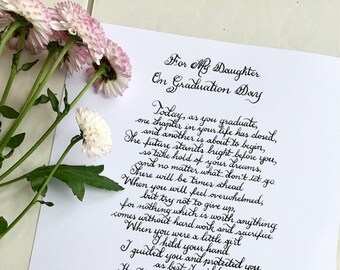 For My Daughter
On Graduation Day
Today, as you graduate,
one chapter in your life has closed,
and another is about to begin,
The future stands bright before you,
so take hold of your dreams,
And no matter what, don't let go
There will be times ahead
When you will feel overwhelmed,
but try not to give up,
for nothing which is worth anything
comes without hard work and sacrifice
When you were a little girl
I held your hand
I guided you and protected you
as best I could